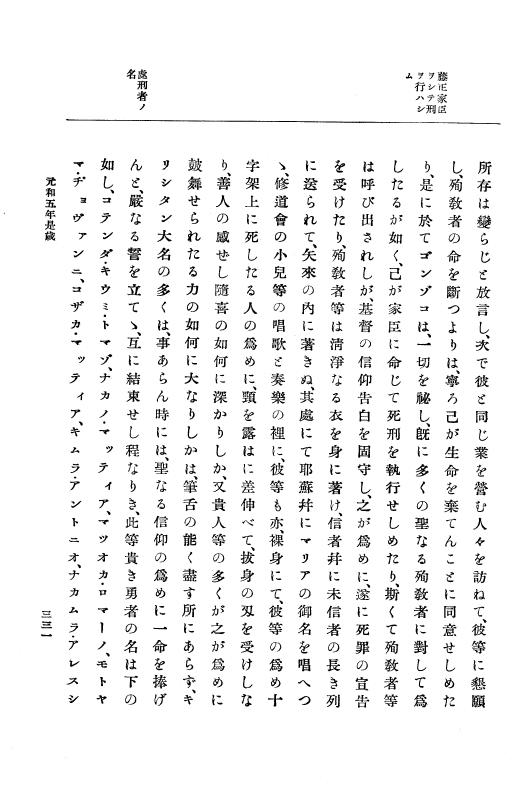 藤正家臣
ヲシテ刑
ヲ行ハシ
ム
處刑者ノ
名
所存は變らじと放言し、次で彼と同じ業を營む人々を訪ねて、彼等に懇願
し、殉敎者の命を斷つよりは、寧ろ己が生命を棄てんことに同意せしめた
り、是に於てゴンゾコは、一切を祕し、旣に多くの聖なる殉敎者に對して爲
したるが如く、己が家臣に命じて死刑を執行せしめたり、斯くて殉敎者等
は呼び出されしが、基督の信仰告白を固守し、之が爲めに、遂に死罪の宣告
を受けたり、殉敎者等は淸淨なる衣を身に著け、信者幷に未信者の長き列
に送られて、矢來の內に著きぬ、其處にて耶蘇幷にマリアの御名を唱へつ
ゝ、修道會の小兒等の唱歌と奏樂の裡に、彼等も亦、裸身にて、彼等の爲め十
字架上に死したる人の爲めに、頸を露はに差伸べて、拔身の刄を受けしな
り、善人の感せし隨喜の如何に深かりしか、又貴人等の多くが之が爲めに
皷舞せられたる力の如何に大なりしかは、筆舌の能く盡す所にあらず、キ
リシタン大名の多くは、事あらん時には、聖なる信仰の爲めに一命を捧げ
んと、嚴なる誓を立てゝ、互に結束せし程なりき、此等貴き勇者の名は下の
如し、コテンダ・キウミ・トマゾ、ナカノ・マッティア、マツオカ・ロマーノ、モトヤ
マ・ヂョヴァンニ、コザカ・マッティア、キムラ・アントニオ、ナカムラ・アレスシ
元和五年是歲
三三一